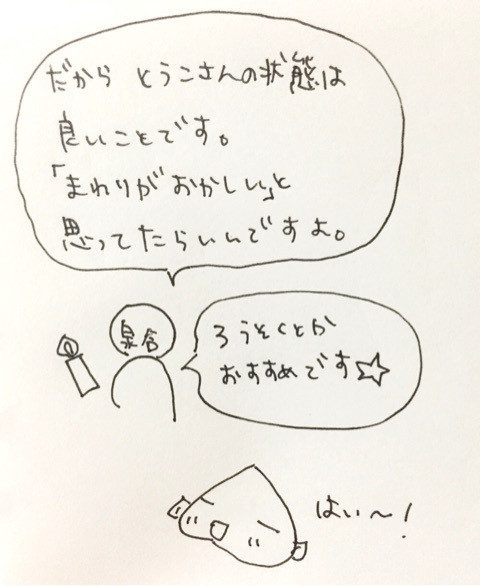 だから とうこさんの状態は
良いことです。
「まわりがおかしい」と
思ってたらいいんですよ。
泉谷
ろうそくとか
おすすめです☆
はい〜！